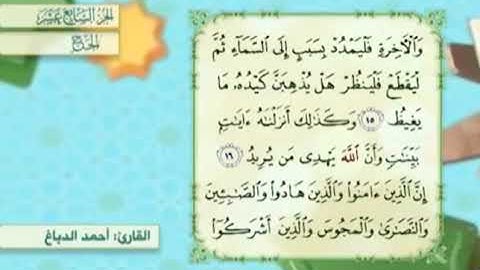 الجزء السابع عشر
الحج
وَٱلْأَخِرَةِ فَلْيَمْدُدْ بِسَبَبٍ إِلَى ٱلسَّمَآءِ ثُمَّ
لْيَقْطَعْ فَلْيَنظُرْ هَلْ يُذْهِبَنَّ كَيْدُهُۥ مَا
يَغِيظُ ١٥ وَكَذَٰلِكَ أَنزَلْنَٰهُ ءَايَٰتٍۭ
بَيِّنَٰتٍ وَأَنَّ ٱللَّهَ يَهْدِى مَن يُرِيدُ ١٦
إِنَّ ٱلَّذِينَ ءَامَنُوا۟ وَٱلَّذِينَ هَادُوا۟ وَٱلصَّٰبِـِٔينَ
وَٱلنَّصَٰرَىٰ وَٱلْمَجُوسَ وَٱلَّذِينَ أَشْرَكُوٓا۟
القارئ: أحمد الدباغ